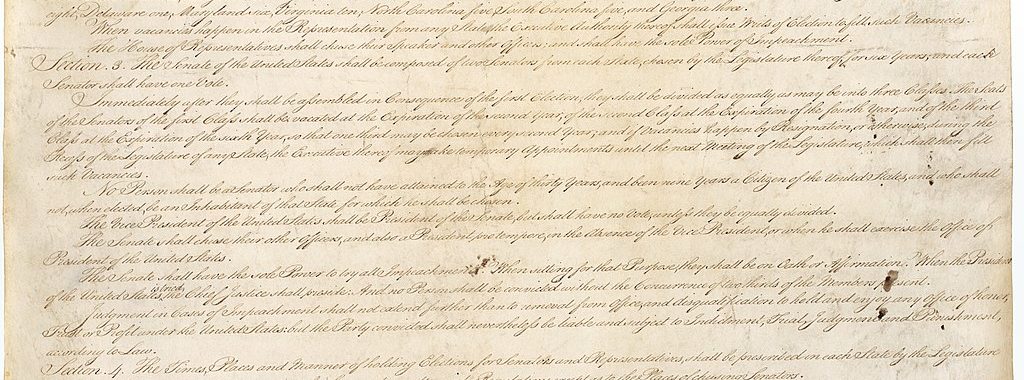 eight, Delaware one, Maryland six, Virginia ten, North Carolina five, South Carolina five, and Georgia three.
When vacancies happen in the Representation from any State, the Executive Authority thereof shall issue Writs of Election to fill such Vacancies.
The House of Representatives shall chuse their Speaker and other Officers; and shall have the sole Power of Impeachment.
Section. 3. The Senate of the United States shall be composed of two Senators from each State, chosen by the Legislature thereof, for six Years; and each
Senator shall have one Vote.
Immediately after they shall be assembled in Consequence of the first Election, they shall be divided as equally as may be into three Classes. The Seats
of the Senators of the first Class shall be vacated at the Expiration of the second Year, of the second Class at the Expiration of the fourth Year, and of the third
Class at the Expiration of the sixth Year, so that one third may be chosen every second Year; and if Vacancies happen by Resignation, or otherwise, during the
Recess of the Legislature of any State, the Executive thereof may make temporary Appointments until the next Meeting of the Legislature, which shall then fill
such Vacancies.
No Person shall be a Senator who shall not have attained to the Age of thirty Years, and been nine Years a Citizen of the United States, and who shall
not, when elected, be an Inhabitant of that State for which he shall be chosen.
The Vice President of the United States shall be President of the Senate, but shall have no Vote, unless they be equally divided.
The Senate shall chuse their other Officers, and also a President pro tempore, in the Absence of the Vice President, or when he shall exercise the Office of
President of the United States.
The Senate shall have the sole Power to try all Impeachments. When sitting for that Purpose, they shall be on Oath or Affirmation. When the President
of the United States is tried, the Chief Justice shall preside: And no Person shall be convicted without the Concurrence of two thirds of the Members present.
Judgment in Cases of Impeachment shall not extend further than to removal from Office, and disqualification to hold and enjoy any Office of honor,
Trust or Profit under the United States: but the Party convicted shall nevertheless be liable and subject to Indictment, Trial, Judgment and Punishment,
according to Law.
Section. 4. The Times, Places and Manner of holding Elections for Senators and Representatives, shall be prescribed in each State by the Legislature
to the Places of chusing Senators.